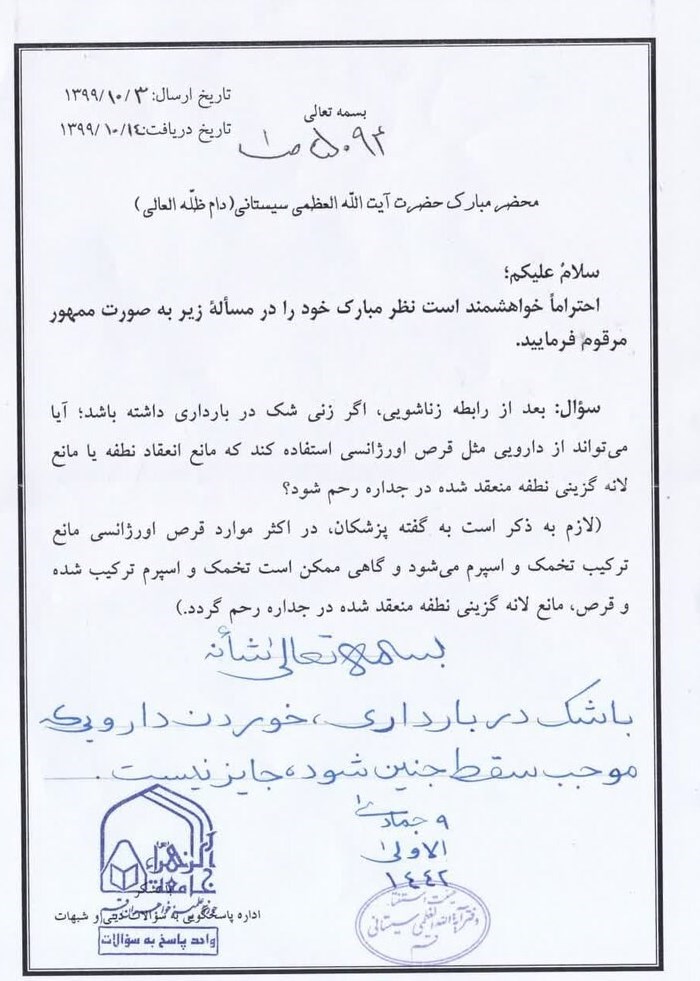 تاریخ ارسال: ۱۳۹۹/۱۰/۳
بسمه تعالی
تاریخ دریافت: ۱۳۹۹/۱۰/۱۴
۵۰۹۴
محضر مبارک حضرت آیت الله العظمی سیستانی(دام ظلّه العالی)
سلامٌ علیکم؛
احتراماً خواهشمند است نظر مبارک خود را در مسألهٔ زیر به صورت ممهور
مرقوم فرمایید.
سؤال: بعد از رابطه زناشویی، اگر زنی شک در بارداری داشته باشد؛ آیا
می‌تواند از دارویی مثل قرص اورژانسی استفاده کند که مانع انعقاد نطفه یا مانع
لانه گزینی نطفه منعقد شده در جداره رحم شود؟
(لازم به ذکر است به گفته پزشکان، در اکثر موارد قرص اورژانسی مانع
ترکیب تخمک و اسپرم می‌شود و گاهی ممکن است تخمک و اسپرم ترکیب شده
و قرص، مانع لانه گزینی نطفه منعقد شده در جداره رحم گردد.)
بسمه تعالی شأنه
با شک در بارداری، خوردن دارویی که
موجب سقط جنین شود، جایز نیست.
۹ جمادی
الاولی
۱۴۴۲
جامعة الزهراء
با تشکر
اداره پاسخگویی به سؤالات دینی و شبهات
واحد پاسخ به سؤالات
دفتر آیة الله العظمی سیستانی
قم